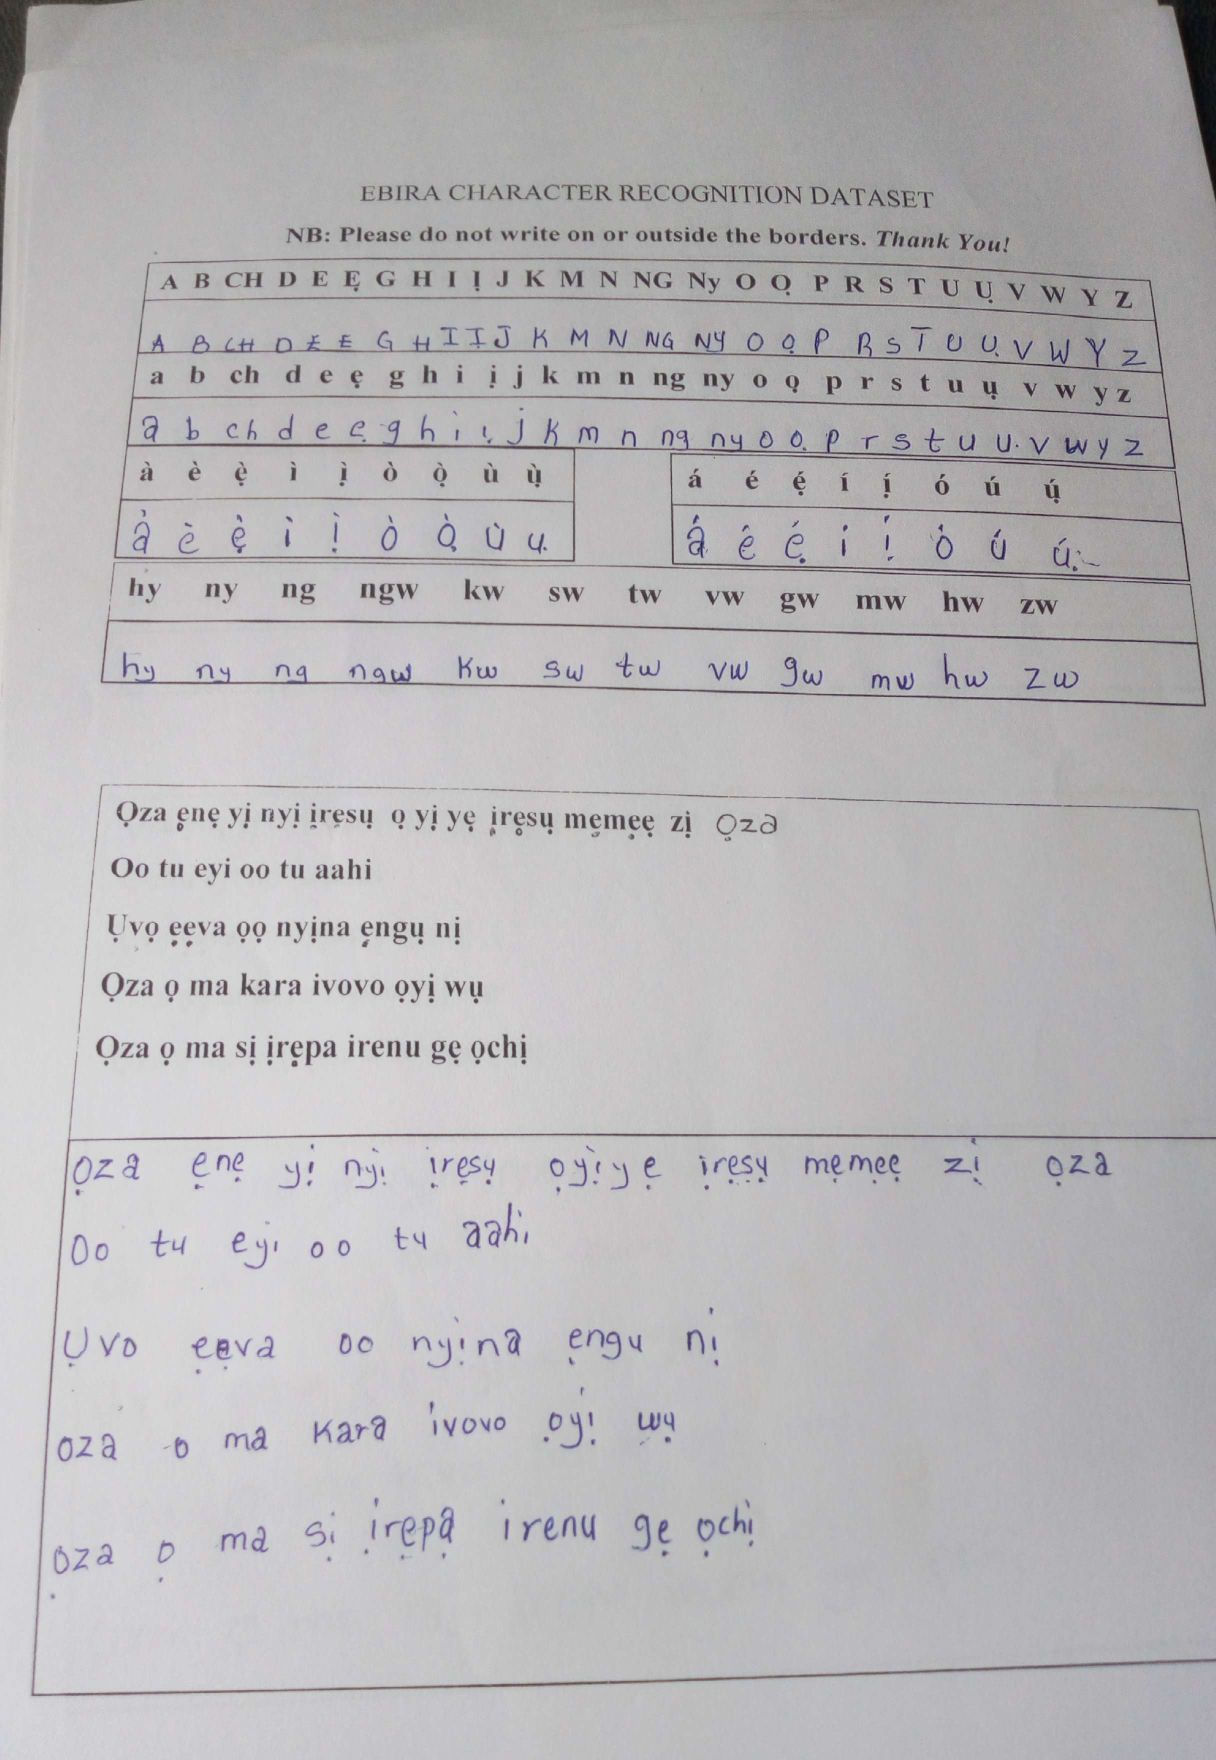 EBIRA CHARACTER RECOGNITION DATASET
NB: Please do not write on or outside the borders. Thank You!
A B CH D E Ẹ G H I Ị J K M N NG Ny O Ọ P R S T U Ụ V W Y Z
A B CH D E E G H I Ị J K M N NG NY O Ọ P R S T U Ụ V W Y Z
a b ch d e ẹ g h i ị j k m n ng ny o ọ p r s t u ụ v w y z
a b ch d e ẹ g h i ị j k m n ng ny o ọ p r s t u ụ v w y z
à è ẹ̀ ì ị̀ ò ọ̀ ù ụ̀
ạ̀ è ẹ̀ ì ị̀ ò ọ̀ ù ụ
á é ẹ́ í ị́ ó ú ụ́
ạ́ é ẹ́ í ị́ ó ú ụ́
hy ny ng ngw kw sw tw vw gw mw hw zw
hy ny ng ngw kw sw tw vw gw mw hw zw
Ọza ẹnẹ yị nyị ịrẹsụ ọ yị yẹ ịrẹsụ mẹmẹẹ zị ọza
Oo tu eyi oo tu aahi
Ụvọ ẹẹva ọọ nyịna ẹngụ nị
Ọza ọ ma kara ivovo ọyị wụ
Ọza ọ ma sị ịrẹpa irenu gẹ ọchị
ọza ẹnẹ yị nyị ịrẹsụ ọyịyẹ ịrẹsụ mẹmẹẹ zị ọza
Oo tu eyi oo tu aahi
Ụvo ẹẹva oo nyịna ẹngu nị
oza o ma kara ivovo ọyị wụ
ọza ọ ma sị ịrẹpạ irenu gẹ ọchị